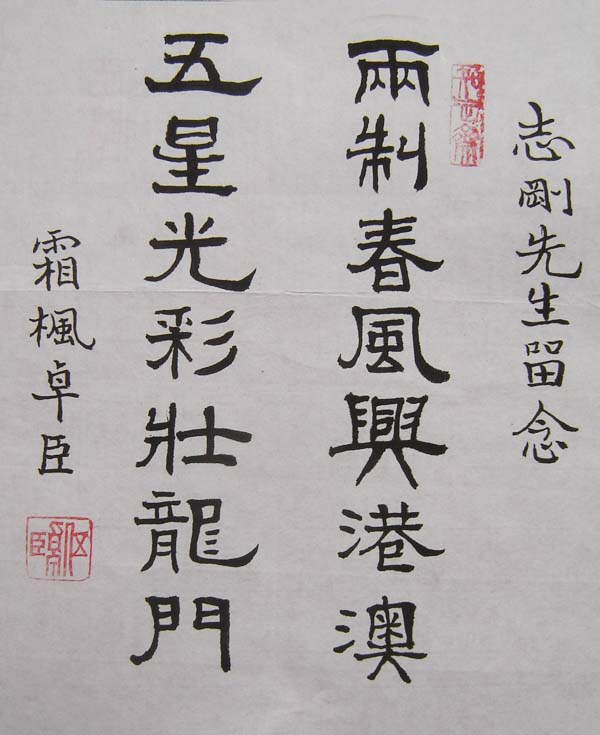 志剛先生留念
兩制春風興港澳
五星光彩壯龍門
霜楓卓臣